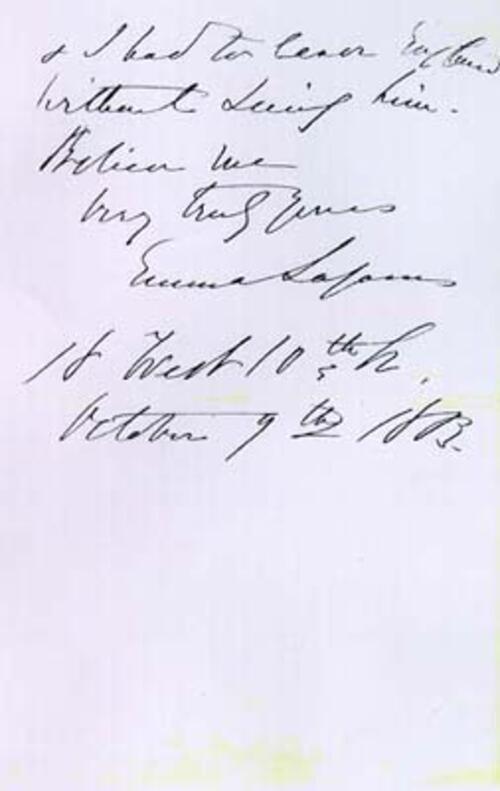 & I had to leave England
without seeing him.
Believe me
Very truly Yours
Emma Lazarus
18 West 10th St.
October 9th 1883.